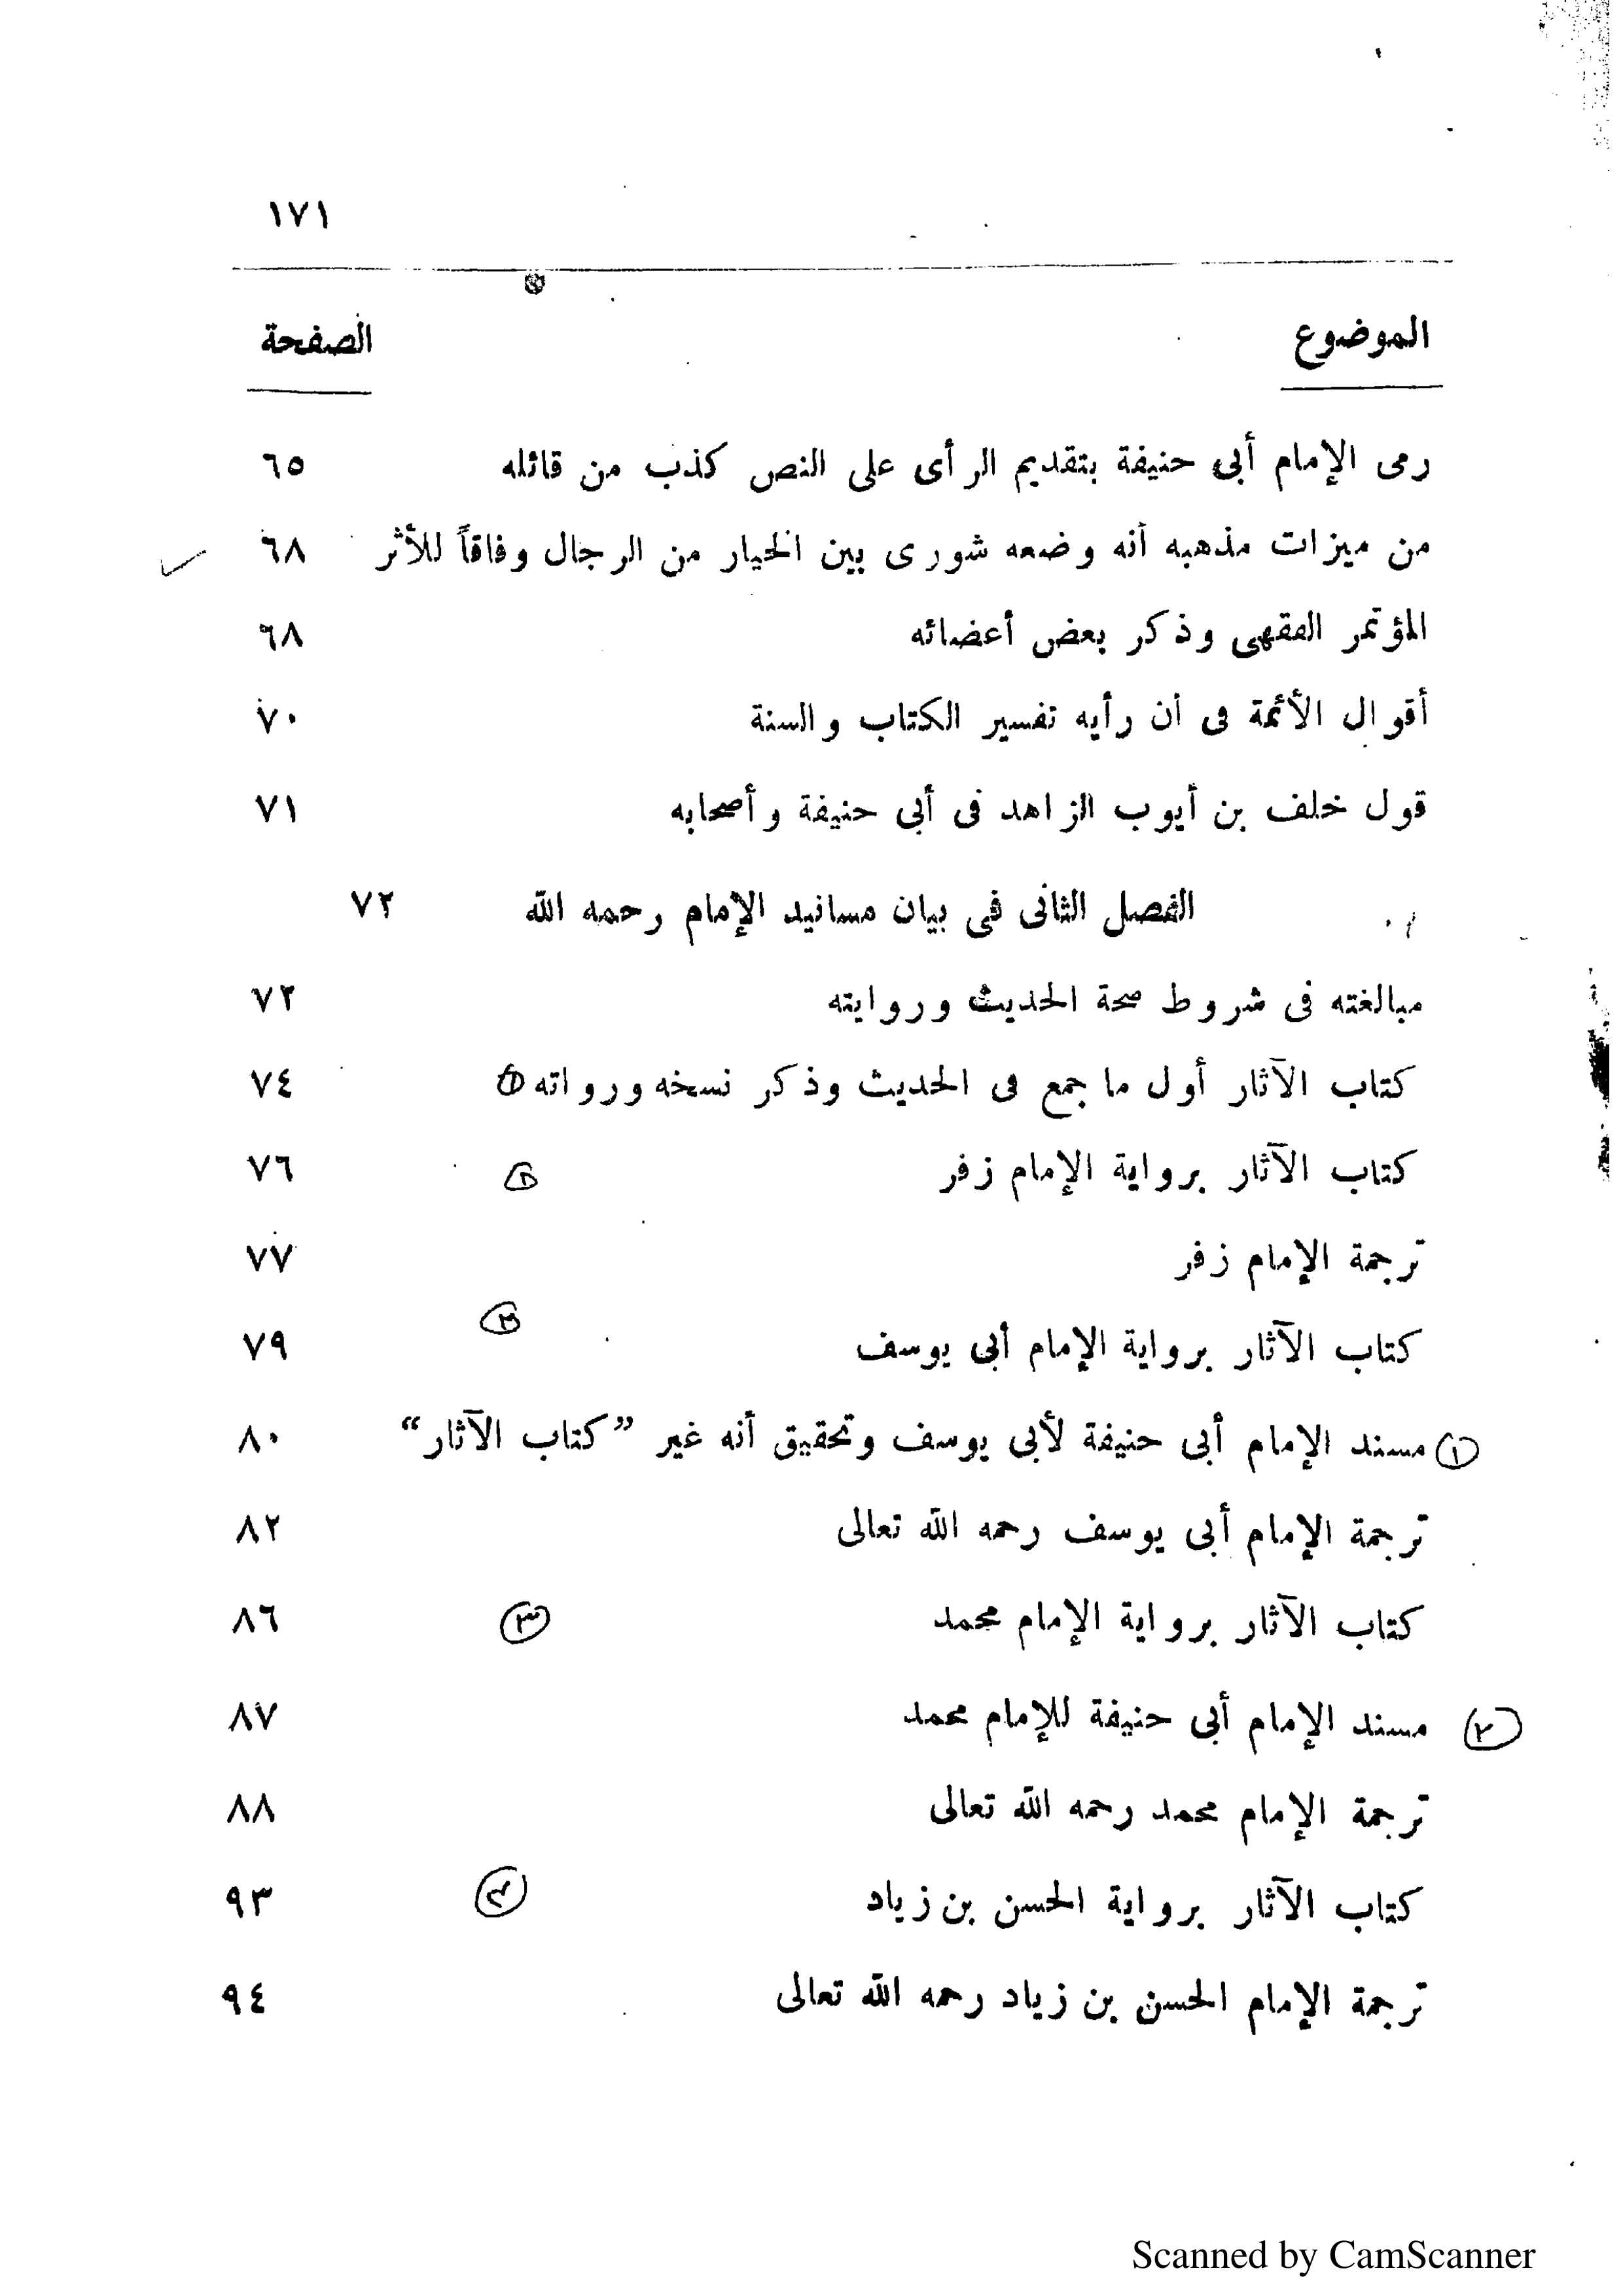 ١٧١
الموضوع الصفحة
رمى الإمام أبى حنيفة بتقديم الرأى على النص كذب من قائله ٦٥
من ميزات مذهبه أنه وضعه شورى بين الخيار من الرجال وفاقاً للأثر ٦٨
المؤتمر الفقهى وذكر بعض أعضائه ٦٨
أقوال الأئمة فى أن رأيه تفسير الكتاب والسنة ٧٠
قول خلف بن أيوب الزاهد فى أبى حنيفة وأصحابه ٧١
الفصل الثانى فى بيان مسانيد الإمام رحمه الله ٧٢
مبالغته فى شروط صحة الحديث وروايته ٧٢
كتاب الآثار أول ما جمع فى الحديث وذكر نسخه ورواته ١ ٧٤
كتاب الآثار برواية الإمام زفر ٧٦
ترجمة الإمام زفر ٧٧
كتاب الآثار برواية الإمام أبى يوسف ٧٩
١ مسند الإمام أبى حنيفة لأبى يوسف وتحقيق أنه غير ”كتاب الآثار“ ٨٠
ترجمة الإمام أبى يوسف رحمه الله تعالى ٨٢
كتاب الآثار برواية الإمام محمد ٣ ٨٦
٢ مسند الإمام أبى حنيفة للإمام محمد ٨٧
ترجمة الإمام محمد رحمه الله تعالى ٨٨
كتاب الآثار برواية الحسن بن زياد ٩٣
ترجمة الإمام الحسن بن زياد رحمه الله تعالى ٩٤
Scanned by CamScanner